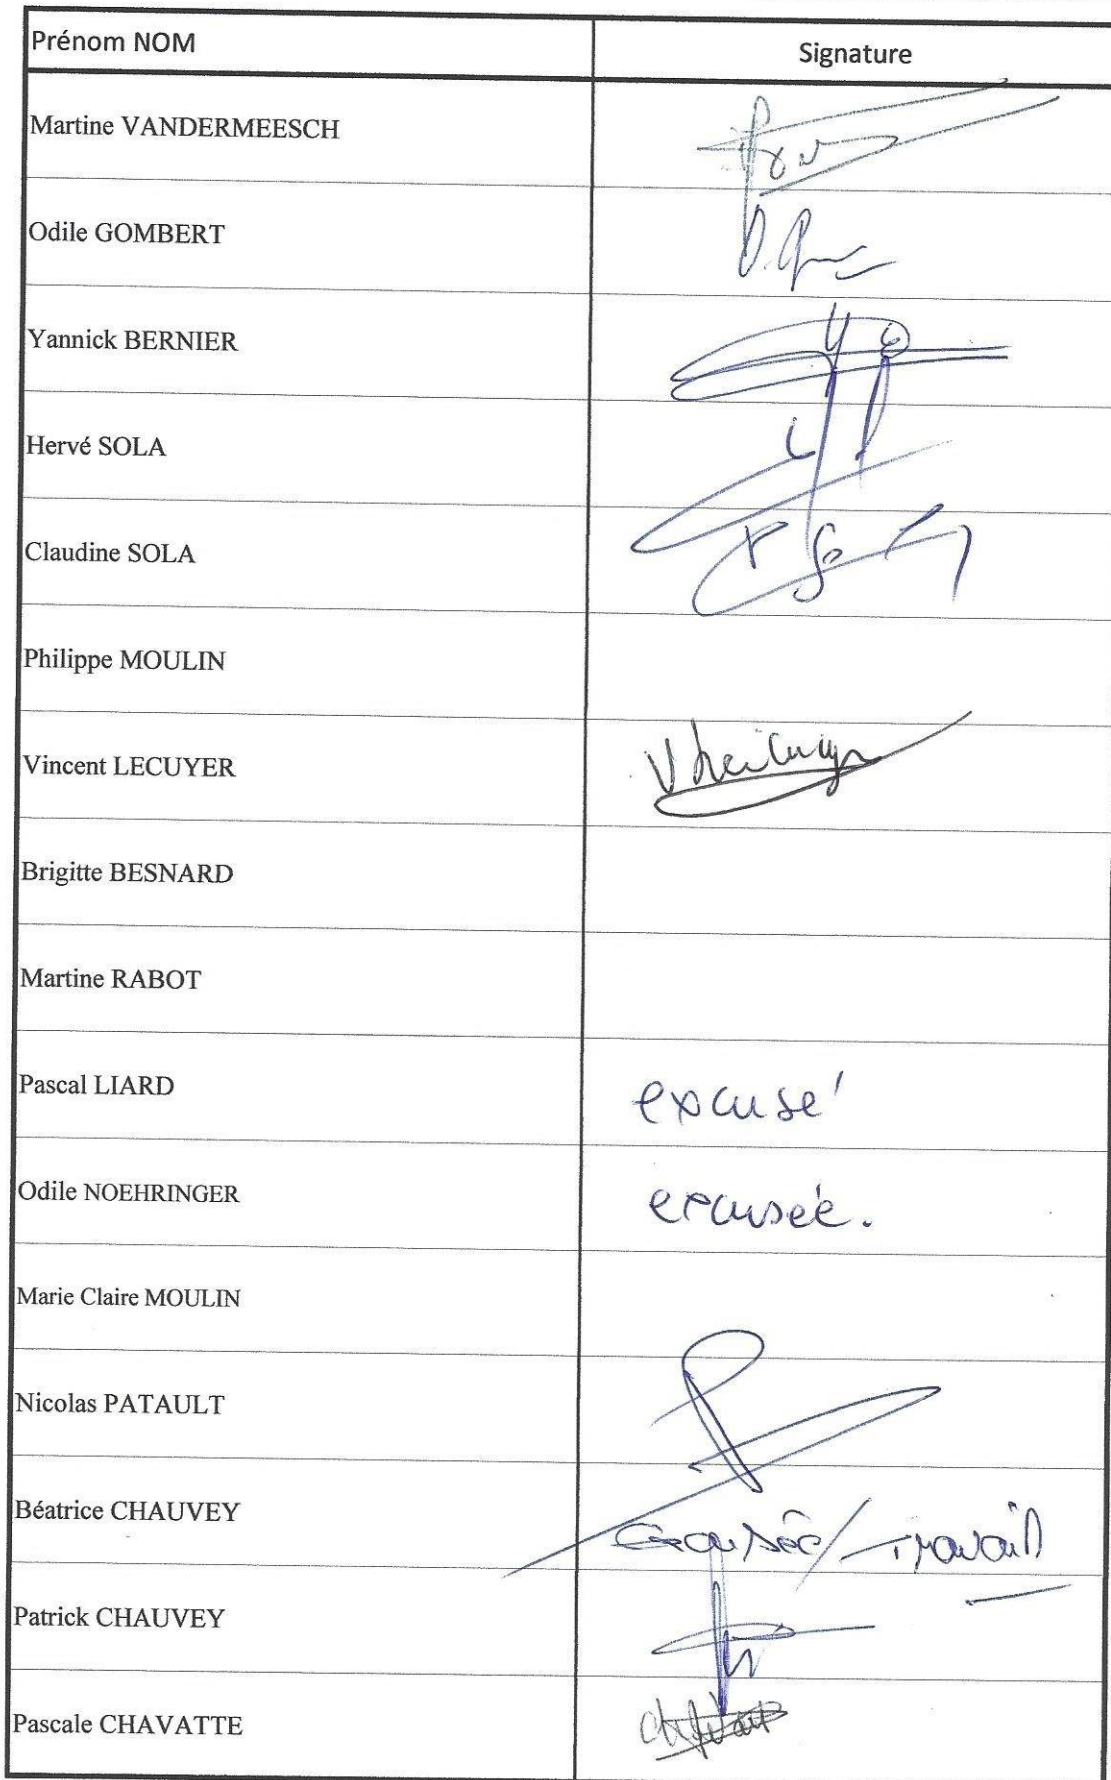 Prénom NOM
Signature
Martine VANDERMEESCH
Odile GOMBERT
Yannick BERNIER
Hervé SOLA
Claudine SOLA
Philippe MOULIN
Vincent LECUYER
Brigitte BESNARD
Martine RABOT
Pascal LIARD
excusé
Odile NOEHRINGER
excusée.
Marie Claire MOULIN
Nicolas PATAULT
Béatrice CHAUVEY
Excusée/Travail
Patrick CHAUVEY
Pascale CHAVATTE